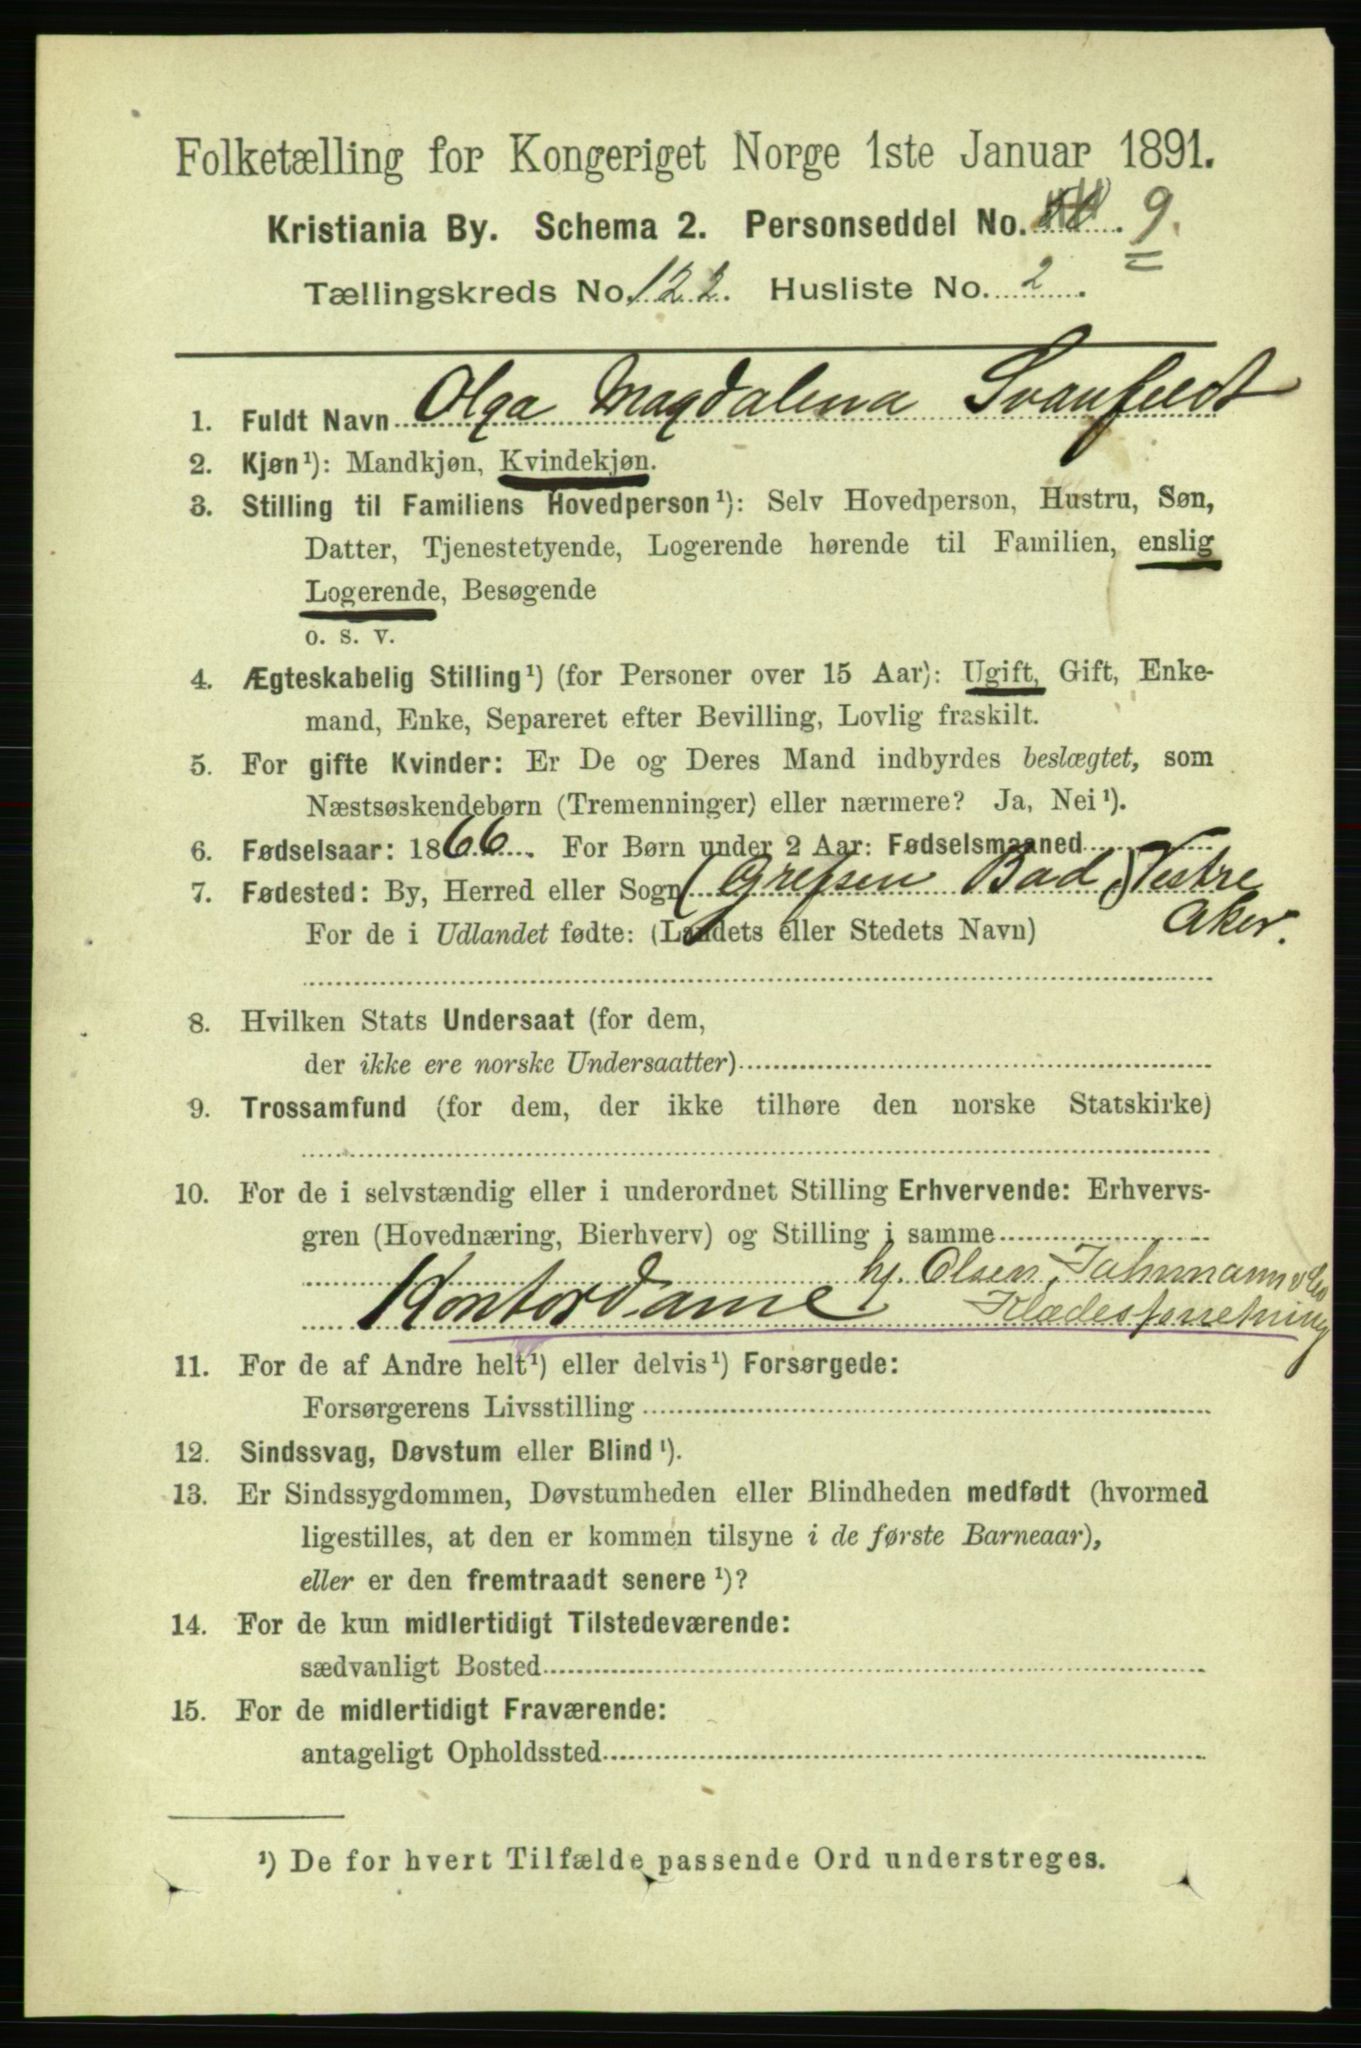 Folketælling for Kongeriget Norge 1ste Januar 1891.
Kristiania By. Schema 2. Personseddel No. 9.
Tællingskreds No. 122. Husliste No. 2.
1. Fuldt Navn Olga Magdalena Svanfeldt
2. Kjøn¹): Mandkjøn, Kvindekjøn.
3. Stilling til Familiens Hovedperson¹): Selv Hovedperson, Hustru, Søn,
Datter, Tjenestetyende, Logerende hørende til Familien, enslig
Logerende, Besøgende
o. s. v.
4. Ægteskabelig Stilling¹) (for Personer over 15 Aar): Ugift, Gift, Enke-
mand, Enke, Separeret efter Bevilling, Lovlig fraskilt.
5. For gifte Kvinder: Er De og Deres Mand indbyrdes beslægtet, som
Næstsøskendebørn (Tremenninger) eller nærmere? Ja, Nei¹).
6. Fødselsaar: 1866. For Børn under 2 Aar: Fødselsmaaned
7. Fødested: By, Herred eller Sogn (Grefsen Bad,) Vestre
Aker.
For de i Udlandet fødte: (Landets eller Stedets Navn)
8. Hvilken Stats Undersaat (for dem,
der ikke ere norske Undersaatter)
9. Trossamfund (for dem, der ikke tilhøre den norske Statskirke)
10. For de i selvstændig eller i underordnet Stilling Erhvervende: Erhvervs-
gren (Hovednæring, Bierhverv) og Stilling i samme
hj. Olsen, Jahnmann & Co
Kontordame Klædesforretning
11. For de af Andre helt¹) eller delvis¹) Forsørgede:
Forsørgerens Livsstilling
12. Sindssvag, Døvstum eller Blind¹).
13. Er Sindssygdommen, Døvstumheden eller Blindheden medfødt (hvormed
ligestilles, at den er kommen tilsyne i de første Barneaar),
eller er den fremtraadt senere¹)?
14. For de kun midlertidigt Tilstedeværende:
sædvanligt Bosted
15. For de midlertidigt Fraværende:
antageligt Opholdssted
¹) De for hvert Tilfælde passende Ord understreges.